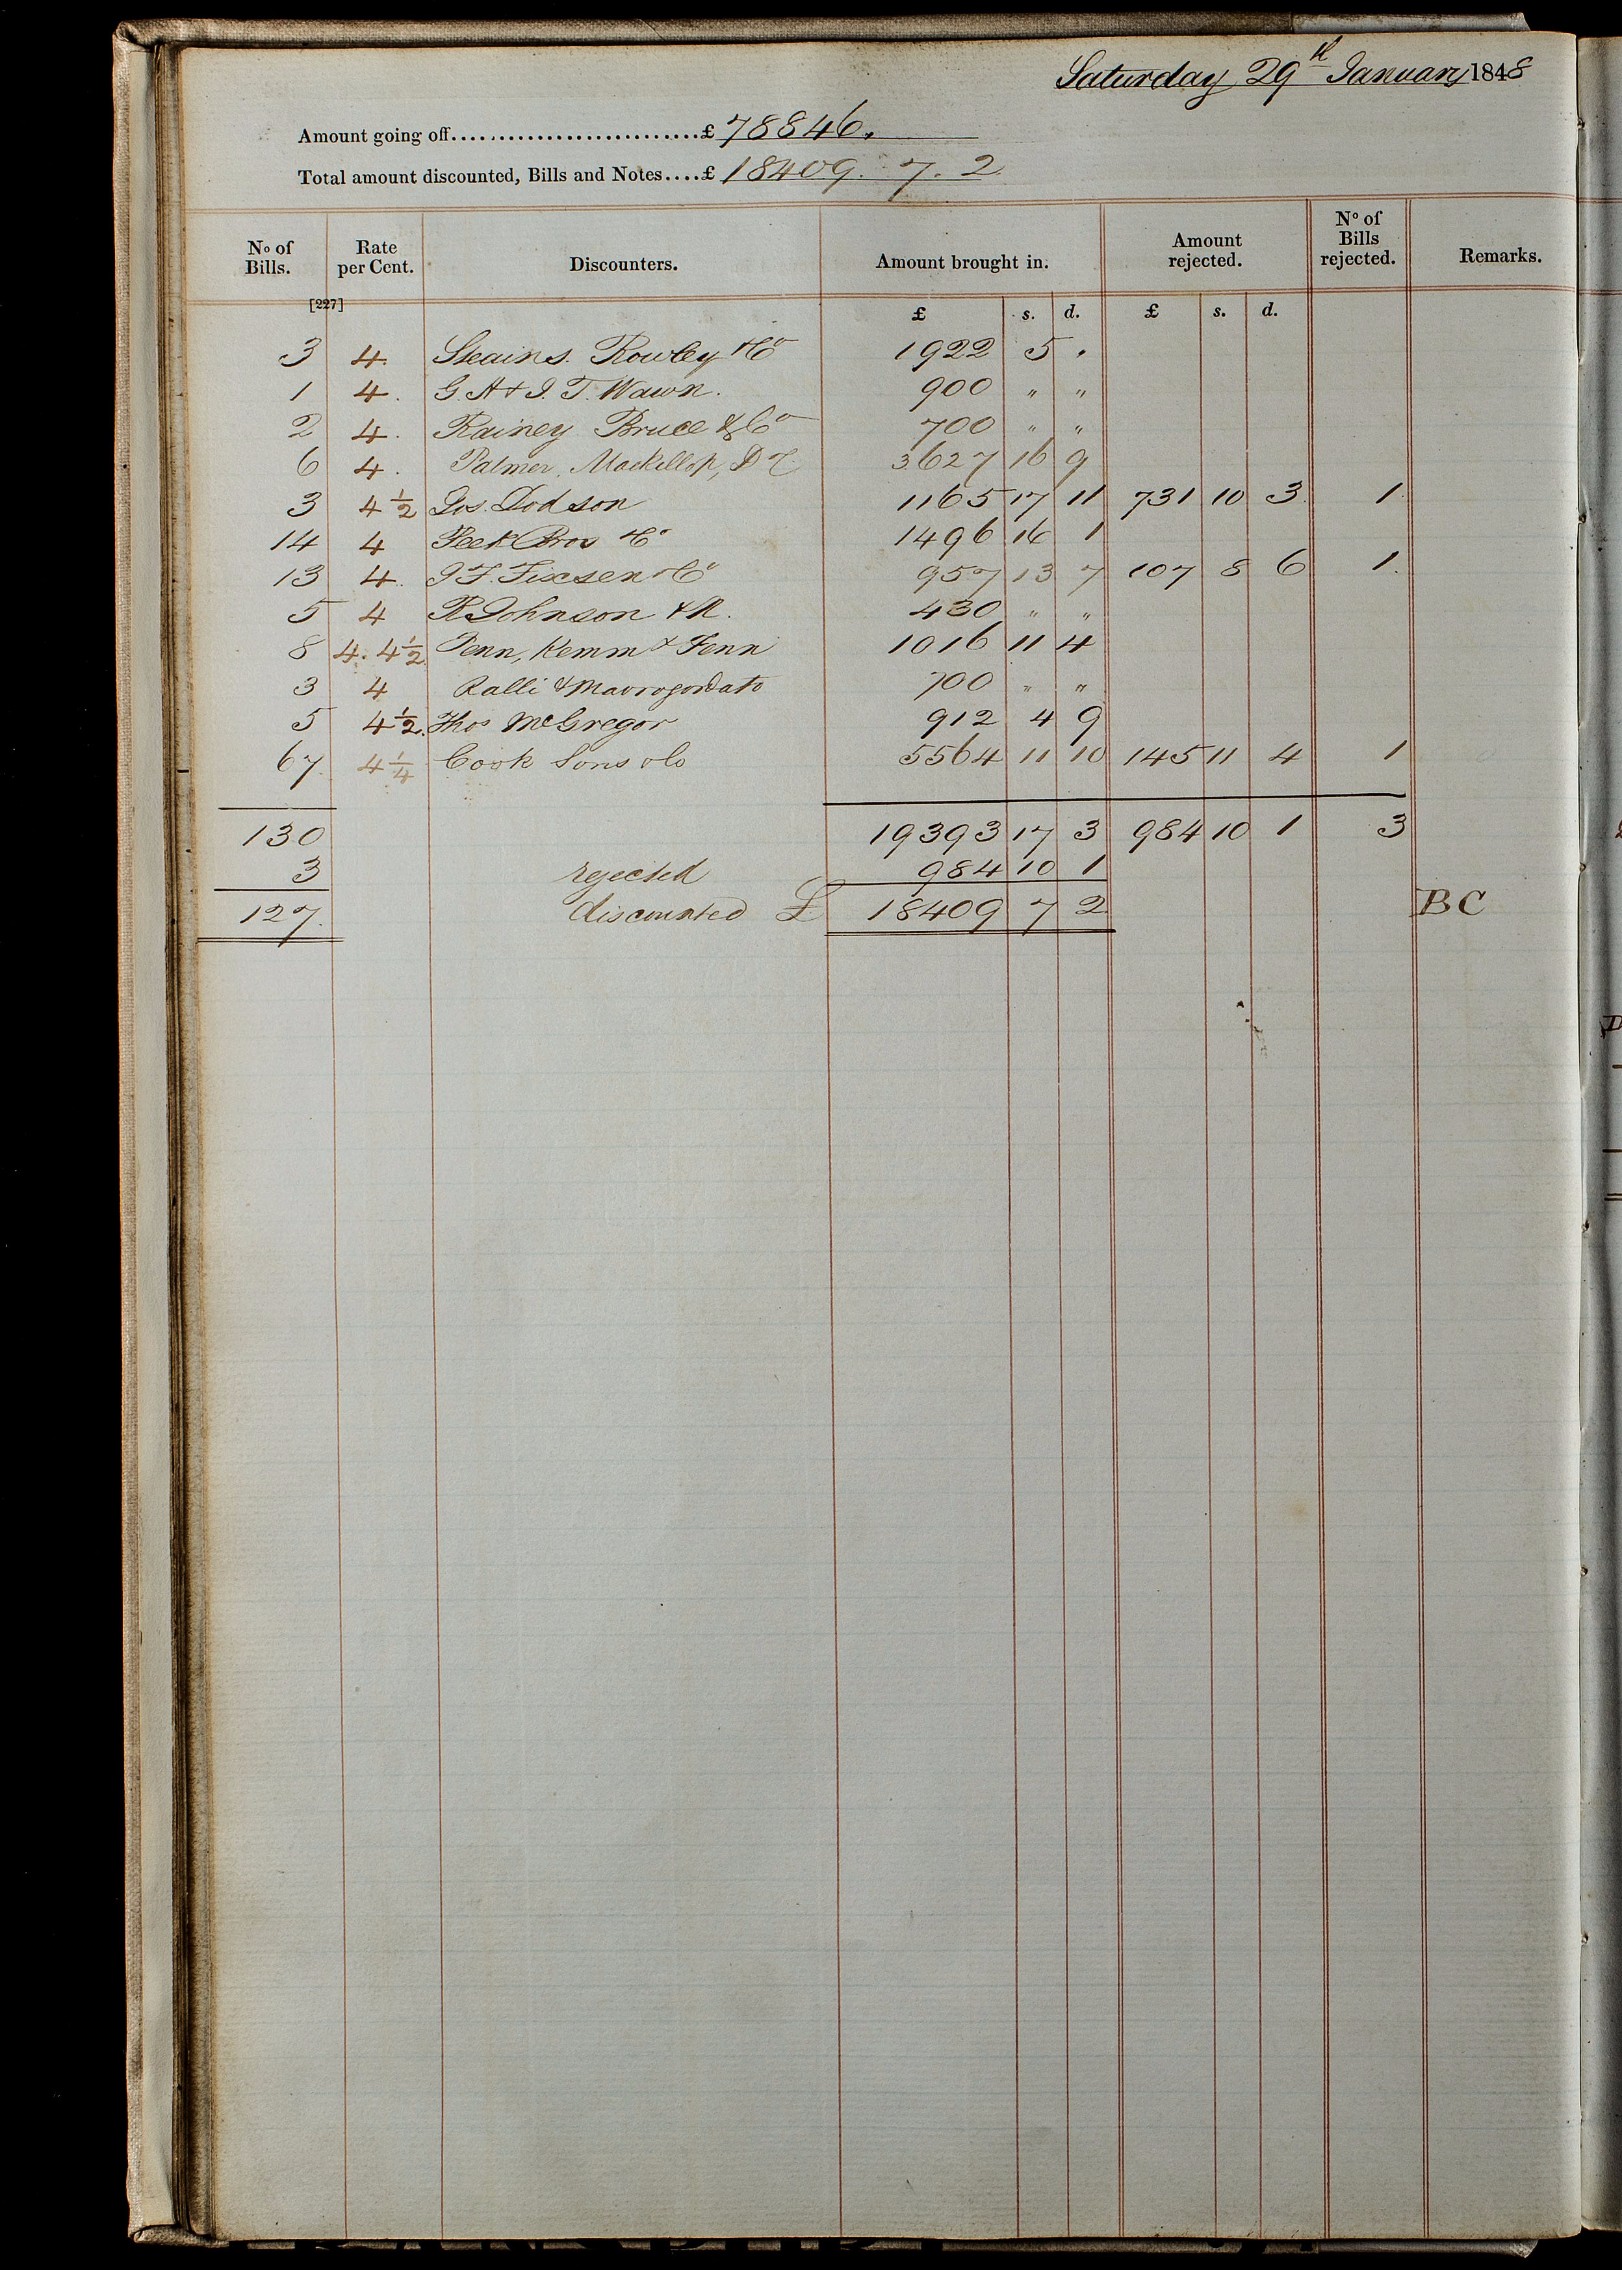 Saturday 29th January 1848
Amount going off..........................£ 78846.
Total amount discounted, Bills and Notes....£ 18409. 7. 2
No of Bills. Rate per Cent. Discounters. Amount brought in. Amount rejected. No of Bills rejected. Remarks.
[227]
£ s. d. £ s. d.
3 4. Steains. Rowley & Co 1922 5 .
1 4. G A & J. T. Wawn. 900 " "
2 4. Rainey Bruce & Co 700 " "
6 4. Palmer, Mackillop, D 3627 16 9
3 4 1/2 Jos. Dodson 1165 17 11 731 10 3 1
14 4 Peek Bros & Co 1496 16 1
13 4. J F. Fixsen & Co 957 13 7 107 8 6 1.
5 4 R Johnson & N. 430 " "
8 4. 4 1/2 Venn, Kemm & Fenn 1016 11 4
3 4 Ralli & Mavrogordato 700 " "
5 4 1/2. Thos McGregor 912 4 9
67. 4 1/4 Cook Sons & Co 5564 11 10 145 11 4 1
130 19393 17 3 984 10 1 3
3 rejected 984 10 1
127. discounted £ 18409 7 2 BC